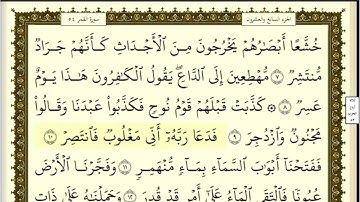 الجزء السابع والعشرون
سورة القمر ٥٤
خُشَّعًا أَبْصَٰرُهُمْ يَخْرُجُونَ مِنَ ٱلْأَجْدَاثِ كَأَنَّهُمْ جَرَادٌ
مُّنتَشِرٌ ٧ مُّهْطِعِينَ إِلَى ٱلدَّاعِ ۖ يَقُولُ ٱلْكَٰفِرُونَ هَٰذَا يَوْمٌ
عَسِرٌ ٨ ۞ كَذَّبَتْ قَبْلَهُمْ قَوْمُ نُوحٍ فَكَذَّبُوا۟ عَبْدَنَا وَقَالُوا۟
مَجْنُونٌ وَٱزْدُجِرَ ٩ فَدَعَا رَبَّهُۥٓ أَنِّى مَغْلُوبٌ فَٱنتَصِرْ ١٠
فَفَتَحْنَآ أَبْوَٰبَ ٱلسَّمَآءِ بِمَآءٍ مُّنْهَمِرٍ ١١ وَفَجَّرْنَا ٱلْأَرْضَ
عُيُونًا فَٱلْتَقَى ٱلْمَآءُ عَلَىٰٓ أَمْرٍ قَدْ قُدِرَ ١٢ وَحَمَلْنَٰهُ عَلَىٰ ذَاتِ